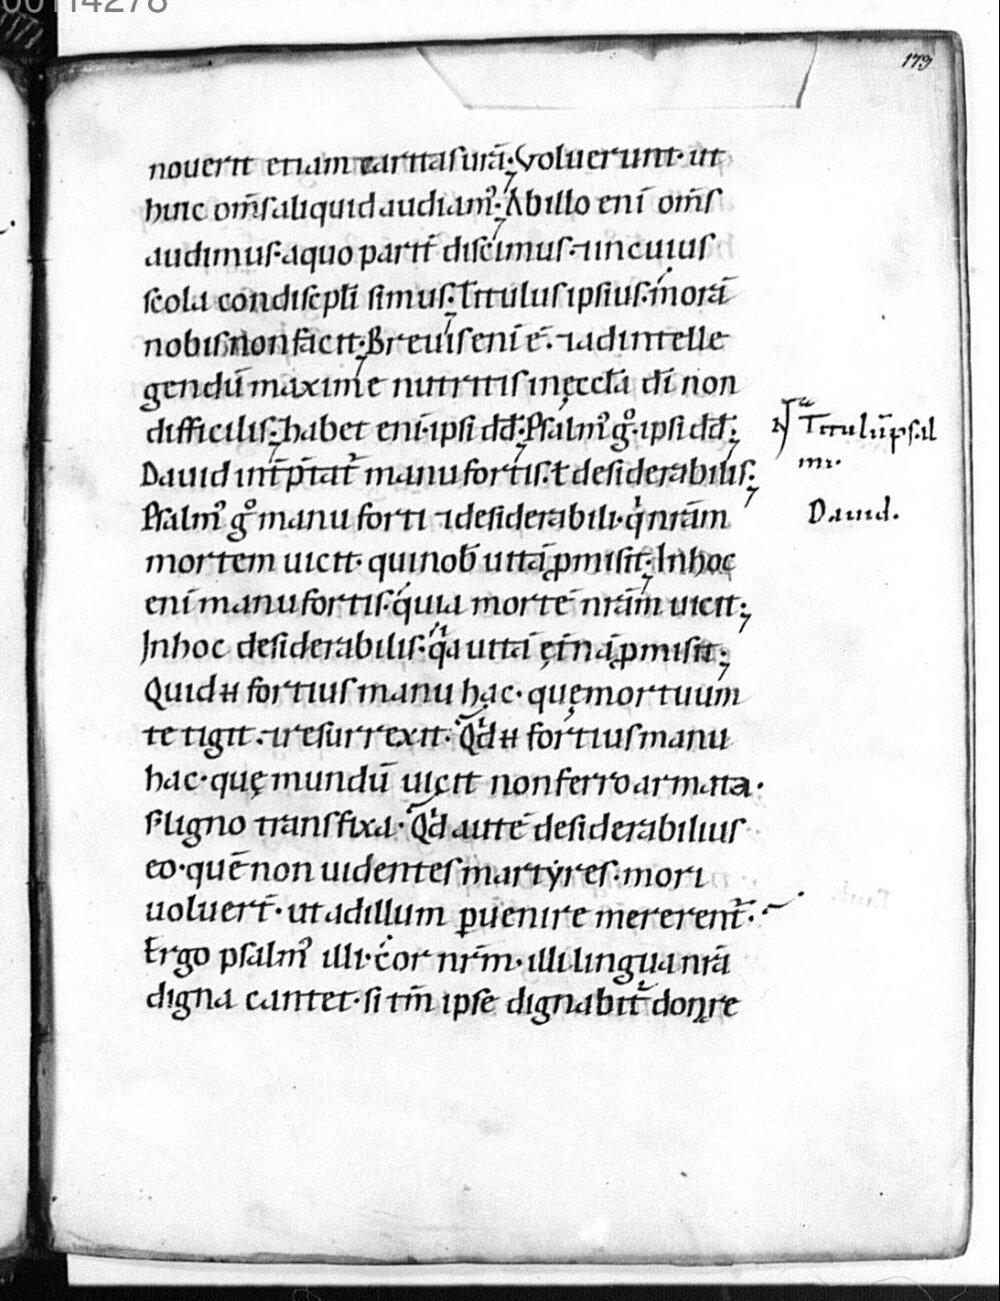 00114278
179
nouerit etiam caritas urā. Voluerunt· ut
huic om̄s aliquid audiam᾽. Ab illo enī om̄s
audimus· a quo partt̄ discimus· ⁊ in cuius
scola condiscipl̄i simus. Titulus ipsius· morā
nobis non facit. Breuis enī ē· ⁊ ad intelle
gendū maxime nutritis in ęccl̄a dī non
difficilis. habet enī· ipsi dd̄. Psalm᾽ gͦ· ipsi dd̄.
Dauid int̄p̄tat᾽ manu fortis· ł desiderabilis.
Psalm᾽ gͦ manu forti ⁊ desiderabili· qͥ nrām
mortem uicit· qui nob̄ uitā ꝓmisit. In hoc
enī manu fortis· quia mortē nrām uicit.
In hoc desiderabilis· qͣa uitā ęt̄nā ꝓmisit.
Quid ĕ fortius manu hac· quę mortuum
tetigit· ⁊ resurrexit. Qͥd ĕ fortius manu
hac· quę mundū uicit non ferro armata·
s; ligno transfixa. Qͥd autē desiderabilius
eo· quē non uidentes martẏres· mori
uoluert̄· ut ad illum ꝑuenire mererent᾽.
Ergo psalm᾽ illi· cor nrm̄· illi lingua nrā
digna cantet· si tm̄ ipse dignabit᾽ donare
Titulū psal
mi.
Dauid.